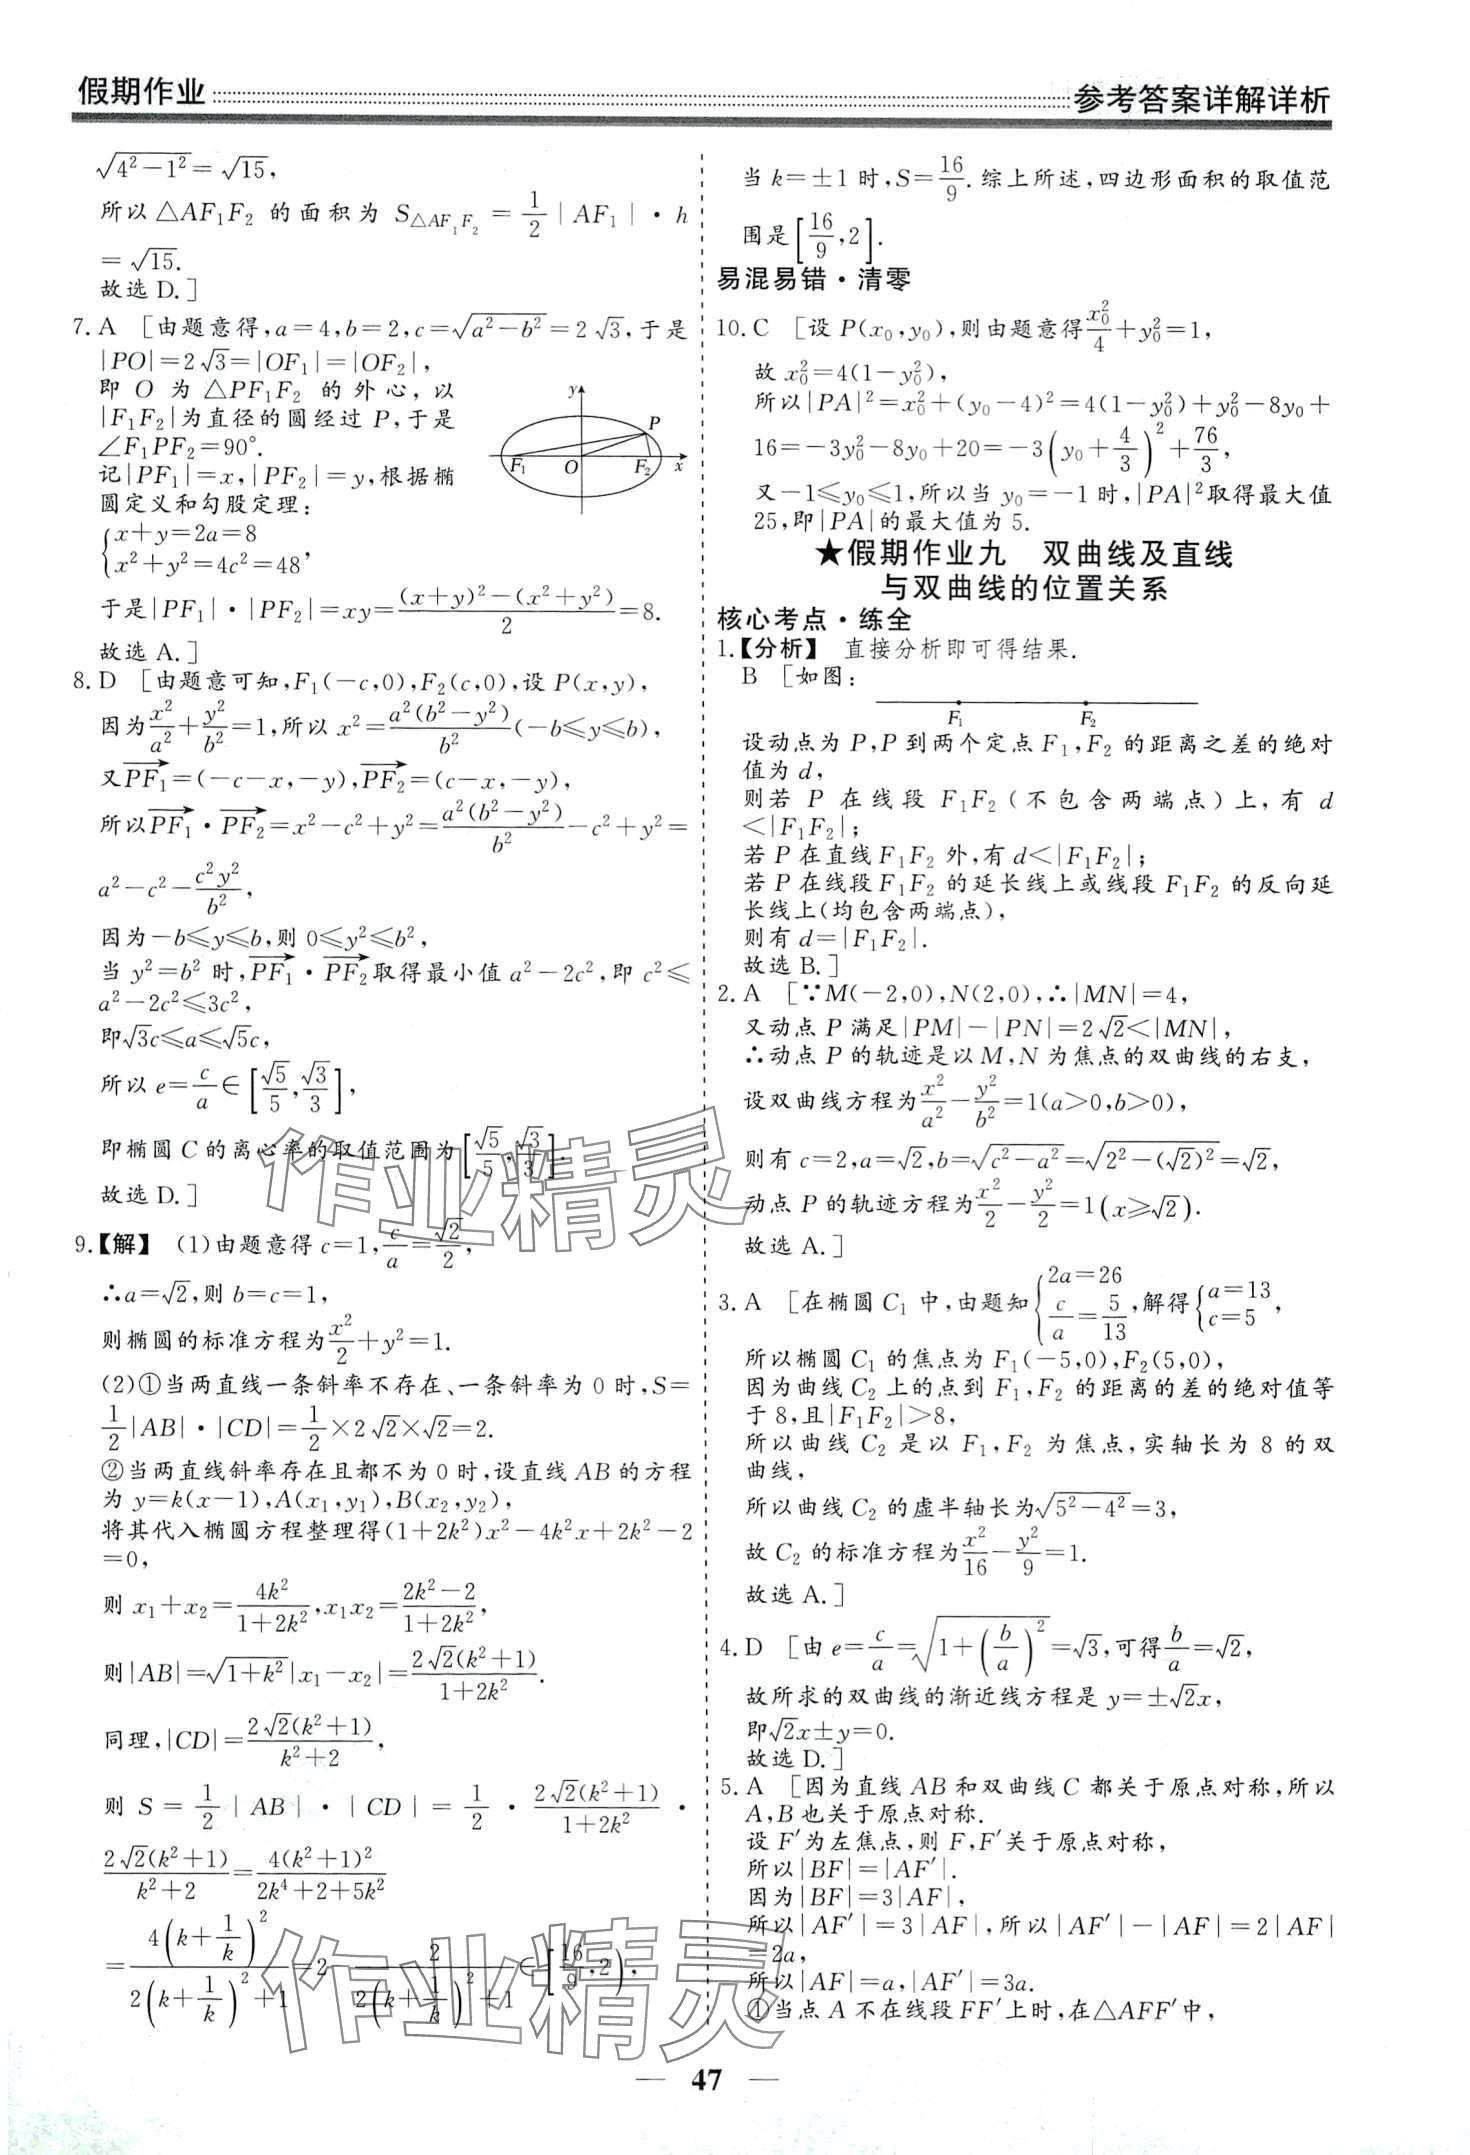 假期作业
参考答案详解详析
√(4²−1²)=√15,
所以△AF₁F₂ 的面积为 S△AF₁F₂ = 1/2 |AF₁|·h
=√15.
故选 D.]
7. A [由题意得,a=4,b=2,c=√(a²−b²)=2√3,于是
|PO|=2√3=|OF₁|=|OF₂|,
即 O 为 △PF₁F₂ 的外心,以
|F₁F₂|为直径的圆经过 P,于是
∠F₁PF₂=90°.
记|PF₁|=x,|PF₂|=y,根据椭
圆定义和勾股定理:
{x+y=2a=8
x²+y²=4c²=48,
于是|PF₁|·|PF₂|=xy=((x+y)²−(x²+y²))/2=8.
故选 A.]
y
P
F₁ O F₂ x
8. D [由题意可知,F₁(−c,0),F₂(c,0),设 P(x,y),
因为x²/a²+y²/b²=1,所以 x²=a²(b²−y²)/b²(−b≤y≤b),
又PF₁→=(−c−x,−y),PF₂→=(c−x,−y),
所以PF₁→·PF₂→=x²−c²+y²=a²(b²−y²)/b²−c²+y²=
a²−c²−c²y²/b²,
因为−b≤y≤b,则 0≤y²≤b²,
当 y²=b² 时,PF₁→·PF₂→取得最小值 a²−2c²,即 c²≤
a²−2c²≤3c²,
即√3c≤a≤√5c,
所以 e=c/a∈[√5/5,√3/3],
即椭圆 C 的离心率的取值范围为[√5/5,√3/3].
故选 D.]
9.【解】 (1)由题意得 c=1,c/a=√2/2,
∴a=√2,则 b=c=1,
则椭圆的标准方程为x²/2+y²=1.
(2)①当两直线一条斜率不存在、一条斜率为 0 时,S=
1/2|AB|·|CD|=1/2×2√2×√2=2.
②当两直线斜率存在且都不为 0 时,设直线 AB 的方程
为 y=k(x−1),A(x₁,y₁),B(x₂,y₂),
将其代入椭圆方程整理得(1+2k²)x²−4k²x+2k²−2
=0,
则 x₁+x₂=4k²/(1+2k²),x₁x₂=(2k²−2)/(1+2k²),
则|AB|=√(1+k²)|x₁−x₂|=2√2(k²+1)/(1+2k²).
同理,|CD|=2√2(k²+1)/(k²+2),
则 S = 1/2 |AB|·|CD| = 1/2 · 2√2(k²+1)/(1+2k²) ·
2√2(k²+1)/(k²+2)=4(k²+1)²/(2k⁴+2+5k²)
=4(k+1/k)²/(2(k+1/k)²+1)=2−2/(2(k+1/k)²+1)∈[16/9,2),
当 k=±1 时,S=16/9.综上所述,四边形面积的取值范
围是[16/9,2].
易混易错·清零
10. C [设 P(x₀,y₀),则由题意得x₀²/4+y₀²=1,
故 x₀²=4(1−y₀²),
所以|PA|²=x₀²+(y₀−4)²=4(1−y₀²)+y₀²−8y₀+
16=−3y₀²−8y₀+20=−3(y₀+4/3)²+76/3,
又−1≤y₀≤1,所以当 y₀=−1 时,|PA|²取得最大值
25,即|PA|的最大值为 5.
★假期作业九 双曲线及直线
与双曲线的位置关系
核心考点·练全
1.【分析】 直接分析即可得结果.
B [如图:
F₁ F₂
设动点为 P,P 到两个定点 F₁,F₂ 的距离之差的绝对
值为 d,
则若 P 在线段 F₁F₂(不包含两端点)上,有 d
<|F₁F₂|;
若 P 在直线 F₁F₂ 外,有 d<|F₁F₂|;
若 P 在线段 F₁F₂ 的延长线上或线段 F₁F₂ 的反向延
长线上(均包含两端点),
则有 d=|F₁F₂|.
故选 B.]
2. A [∵M(−2,0),N(2,0),∴|MN|=4,
又动点 P 满足|PM|−|PN|=2√2<|MN|,
∴动点 P 的轨迹是以 M,N 为焦点的双曲线的右支,
设双曲线方程为x²/a²−y²/b²=1(a>0,b>0),
则有 c=2,a=√2,b=√(c²−a²)=√(2²−(√2)²)=√2,
动点 P 的轨迹方程为x²/2−y²/2=1(x≥√2).
故选 A.]
3. A [在椭圆 C₁ 中,由题知{2a=26 c/a=5/13,解得{a=13 c=5,
所以椭圆 C₁ 的焦点为 F₁(−5,0),F₂(5,0),
因为曲线 C₂ 上的点到 F₁,F₂ 的距离的差的绝对值等
于 8,且|F₁F₂|>8,
所以曲线 C₂ 是以 F₁,F₂ 为焦点,实轴长为 8 的双
曲线,
所以曲线 C₂ 的虚半轴长为√(5²−4²)=3,
故 C₂ 的标准方程为x²/16−y²/9=1.
故选 A.]
4. D [由 e=c/a=√(1+(b/a)²)=√3,可得b/a=√2,
故所求的双曲线的渐近线方程是 y=±√2x,
即√2x±y=0.
故选 D.]
5. A [因为直线 AB 和双曲线 C 都关于原点对称,所以
A,B 也关于原点对称.
设 F′为左焦点,则 F,F′关于原点对称,
所以|BF|=|AF′|.
因为|BF|=3|AF|,
所以|AF′|=3|AF|,所以|AF′|−|AF|=2|AF|
=2a,
所以|AF|=a,|AF′|=3a.
①当点 A 不在线段 FF′上时,在△AFF′中,
作业精灵
作业精灵
— 47 —